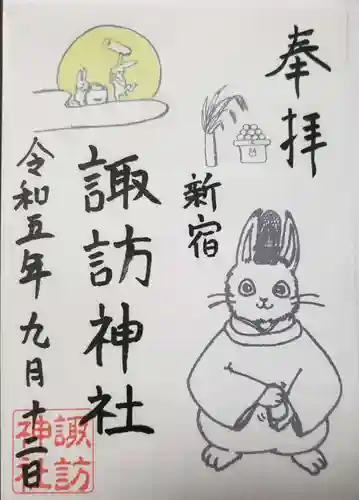 奉拝
新宿
諏訪神社
令和五年九月十二日
諏訪
神社